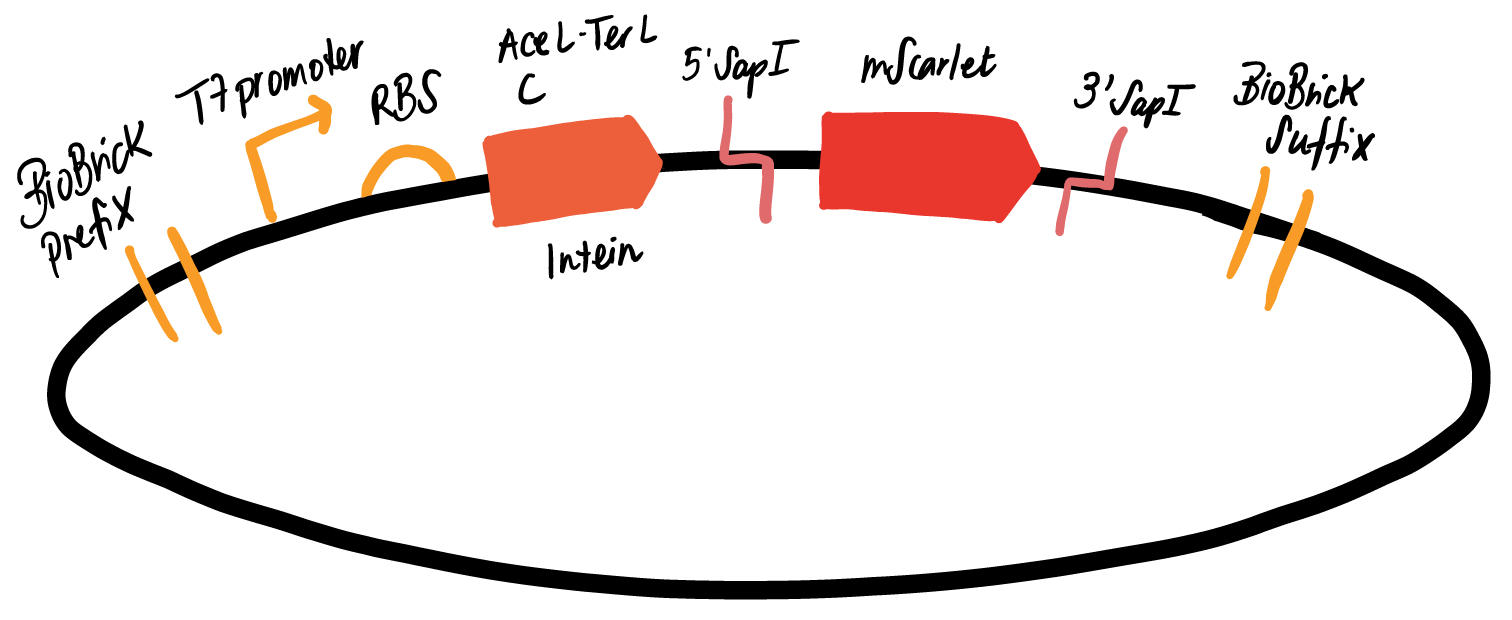 BioBrick
prefix
T7 promoter
RBS
AceL-TerL
C
Intein
5' SapI
mScarlet
3' SapI
BioBrick
Suffix